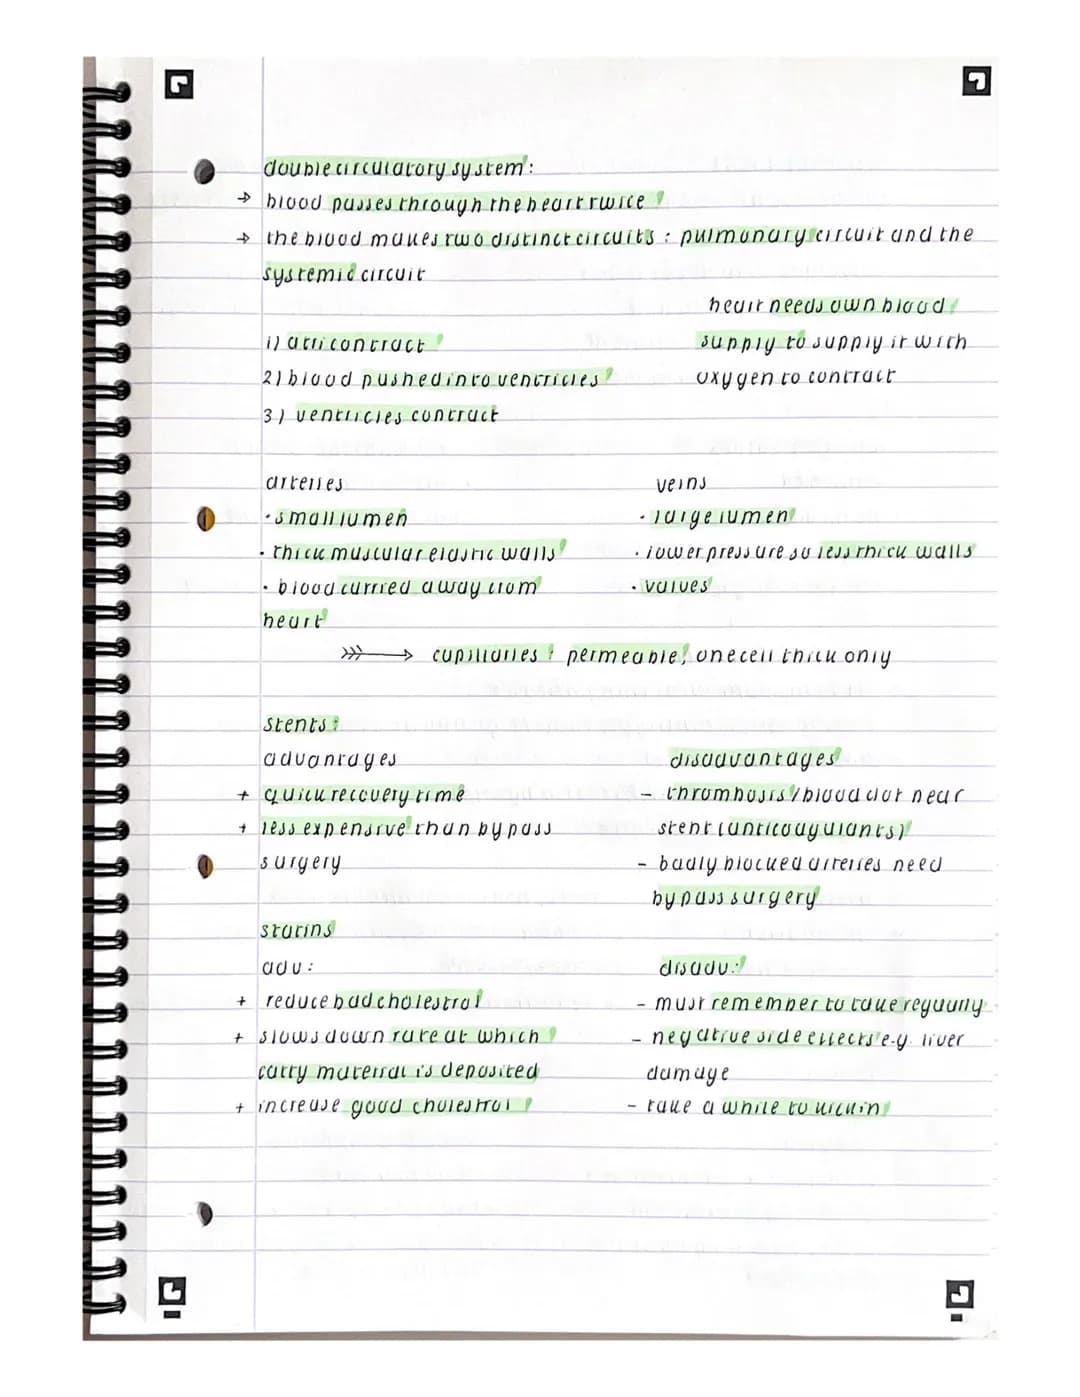 double circulatory system:
→ blood passes through the heart twice
→ the blood makes two distinct circuits : pulmonary circuit and the
systemic circuit
heart needs own blood
1) atri contract
supply to supply it with
2) blood pushed into ventricles
oxygen to contract
3) ventricles contract
arteries
veins
· small lumen
· large lumen
· thick muscular elastic walls
· lower pressure so less thick walls
· blood carried away from
· valves
heart
→ capillaries : permeable, one cell thick only
stents:
advantages
disadvantages
+ quick recovery time
- thrombosis / blood clot near
+ less expensive than bypass
stent (anticoagulants)
surgery
- badly blocked arteries need
bypass surgery
statins
adv:
disadv:
+ reduce bad cholestrol
- must remember to take regually
+ slows down rate at which
- negative side effects e.g. liver
fatty material is deposited
damage
+ increase good cholestrol
- take a while to kick in